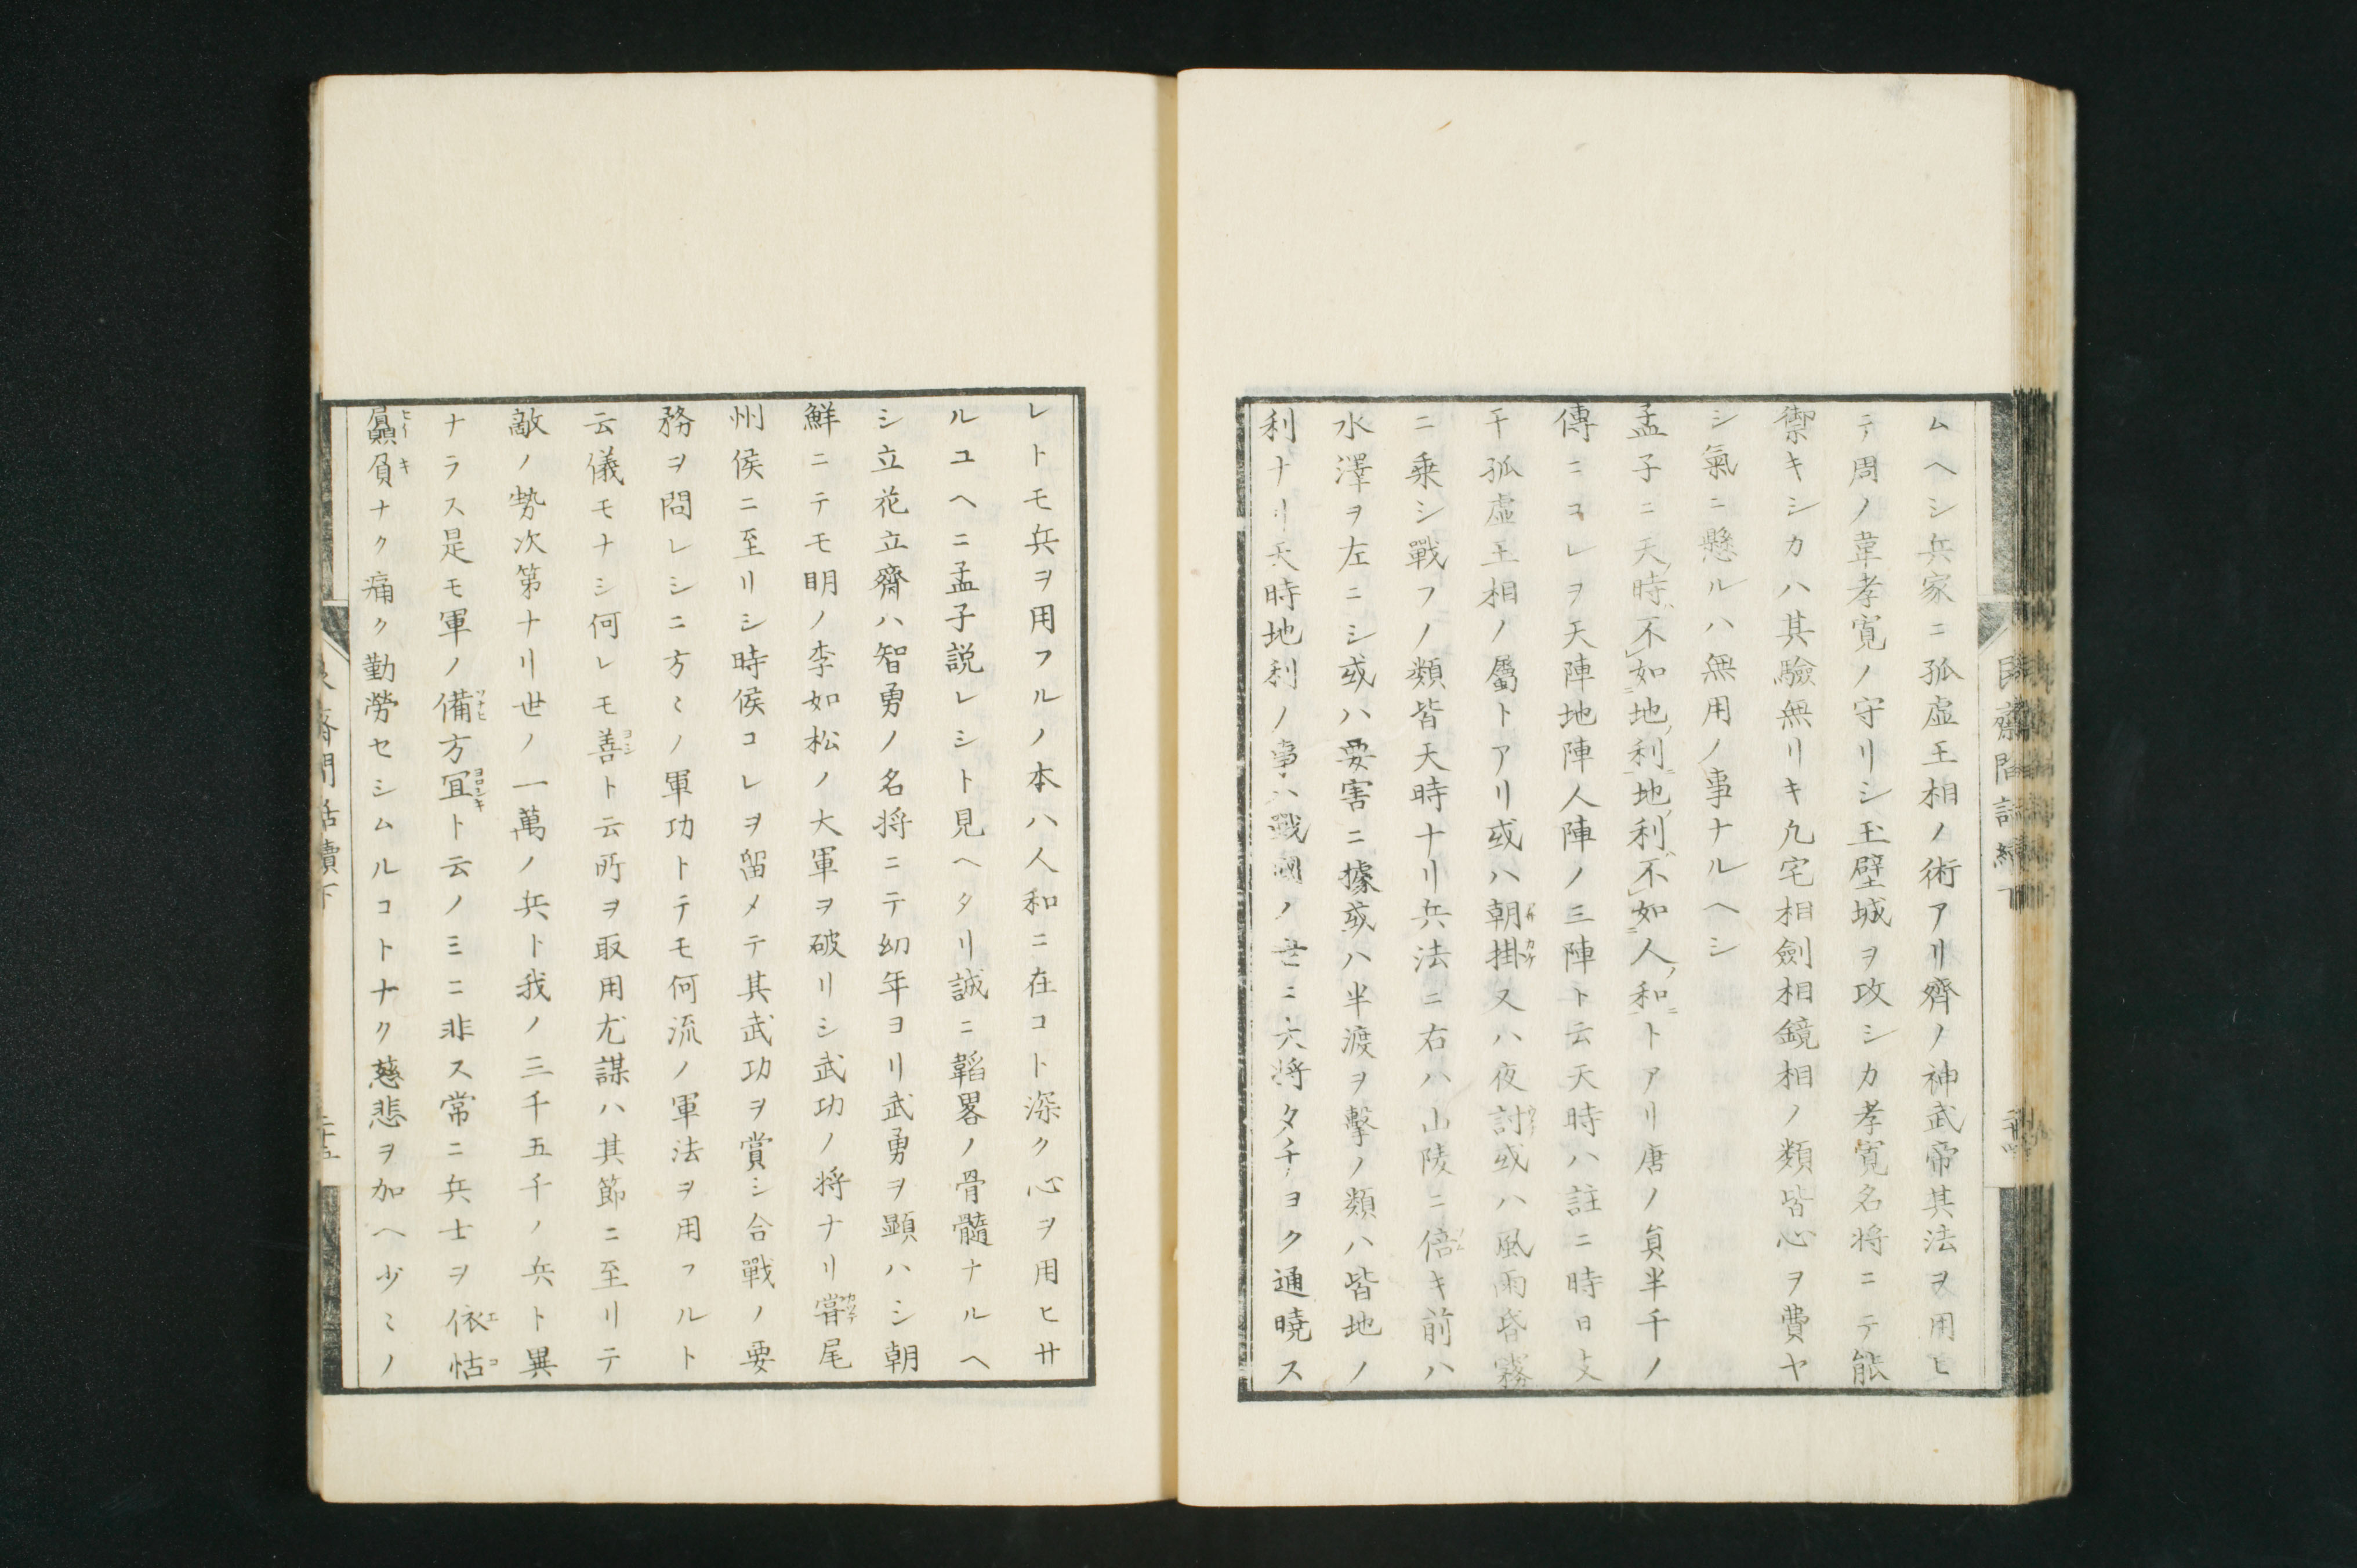 ムヘシ兵家ニ孤虚王相ノ術アリ齊ノ神武帝其法ヲ用ヒ
テ周ノ韋孝寛ノ守リシ玉壁城ヲ攻シカ孝寛名将ニテ能
禦キシカハ其驗無リキ凢宅相劍相鏡相ノ類皆心ヲ費ヤ
シ氣ニ懸ルハ無用ノ事ナルヘシ
孟子ニ天時不如地利地利不如人和トアリ唐ノ貟半千ノ
傳ニコレヲ天陣地陣人陣ノ三陣ト云天時ハ註ニ時日支
干孤虚王相ノ屬トアリ或ハ朝掛又ハ夜討或ハ風雨昏霧
ニ乗シ戰フノ類皆天時ナリ兵法ニ右ハ山陵ニ倍キ前ハ
水澤ヲ左ニシ或ハ要害ニ據或ハ半渡ヲ擊ノ類ハ皆地ノ
利ナリ天時地利ノ事ハ戰國ノ世ニ六将タチヨク通暁ス
レトモ兵ヲ用フルノ本ハ人和ニ在コト深ク心ヲ用ヒサ
ルユヘニ孟子説レシト見ヘタリ誠ニ韜畧ノ骨髓ナルヘ
シ立花立齋ハ智勇ノ名将ニテ幼年ヨリ武勇ヲ顕ハシ朝
鮮ニテモ明ノ李如松ノ大軍ヲ破リシ武功ノ将ナリ甞尾
州侯ニ至リシ時侯コレヲ留メテ其武功ヲ賞シ合戰ノ要
務ヲ問レシニ方〻ノ軍功トテモ何流ノ軍法ヲ用フルト
云儀モナシ何レモ善ト云所ヲ取用尤謀ハ其節ニ至リテ
敵ノ勢次第ナリ世ノ一萬ノ兵ト我ノ三千五千ノ兵ト異
ナラス是モ軍ノ備方冝ト云ノミニ非ス常ニ兵士ヲ依怙
贔負ナク痛ク勤勞セシムルコトナク慈悲ヲ加ヘ少〻ノ